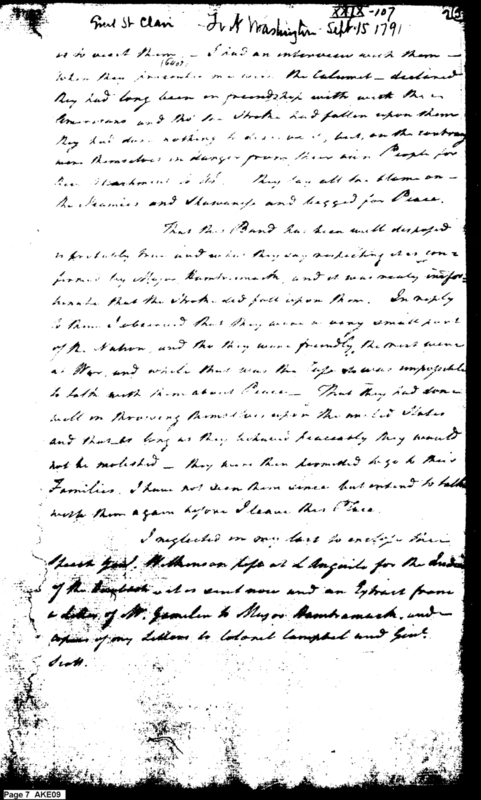 Genl St Clair Ft Washington Sept. 15 1791 XXIX-107
as to treat them. I had an interview with them —
when they presented me with the Calumet — declared
they had long been in friendship with with the
Americans and tho the Stroke had fallen upon them
they had done nothing to deserve it, but, on the contrary
were themselves in danger from their own People for
their attachment to us. They lay all the blame on
the Miamies and Shawanese and begged for Peace.
That this Band has been well disposed
is probably true and what they say respecting it is con=
firmed by Major Hamtramack, and it was really unfor=
tunate that the Stroke did fall upon them. In reply
to them I observed that they were a very small part
of the Nation, and tho they were friendly, the rest were
at War, and while that was the Case it was impossible
to talk with them about Peace — That they had done
well in throwing themselves upon the united States
and that as long as they behaved peaceably they would
not be molested — they were then permitted to go to their
Families. I have not seen them since but intend to talk
with them again before I leave this Place.
I neglected in my last to enclose the
Speech Genl. Wilkinson left at L'Anguile for the
of the it is sent now and an Extract from
a Letter of Mr. Gamelin to Major Hamtramack, and
copies of my Letters to Colonel Campbel and Genl.
Scott.
Page 7 AKE09